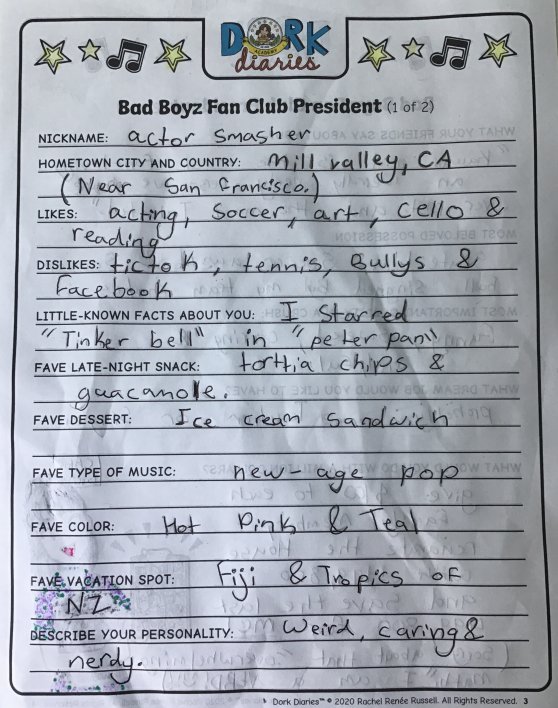 DORK
diaries
Bad Boyz Fan Club President (1 of 2)
NICKNAME: actor smasher
HOMETOWN CITY AND COUNTRY: Mill valley, CA
(Near San Francisco.)
LIKES: acting, Soccer, art, cello &
reading
DISLIKES: tictok, tennis, Bullys &
Facebook
LITTLE-KNOWN FACTS ABOUT YOU: I starred
"Tinker bell" in "peter pan"
FAVE LATE-NIGHT SNACK: torttia chips &
guacanole.
FAVE DESSERT: Ice cream Sandwich
FAVE TYPE OF MUSIC: new-age pop
FAVE COLOR: Hot Pink & Teal
FAVE VACATION SPOT: Fiji & Tropics of
NZ
DESCRIBE YOUR PERSONALITY: Weird, caring &
nerdy.
Dork Diaries™ © 2020 Rachel Renée Russell. All Rights Reserved. 3